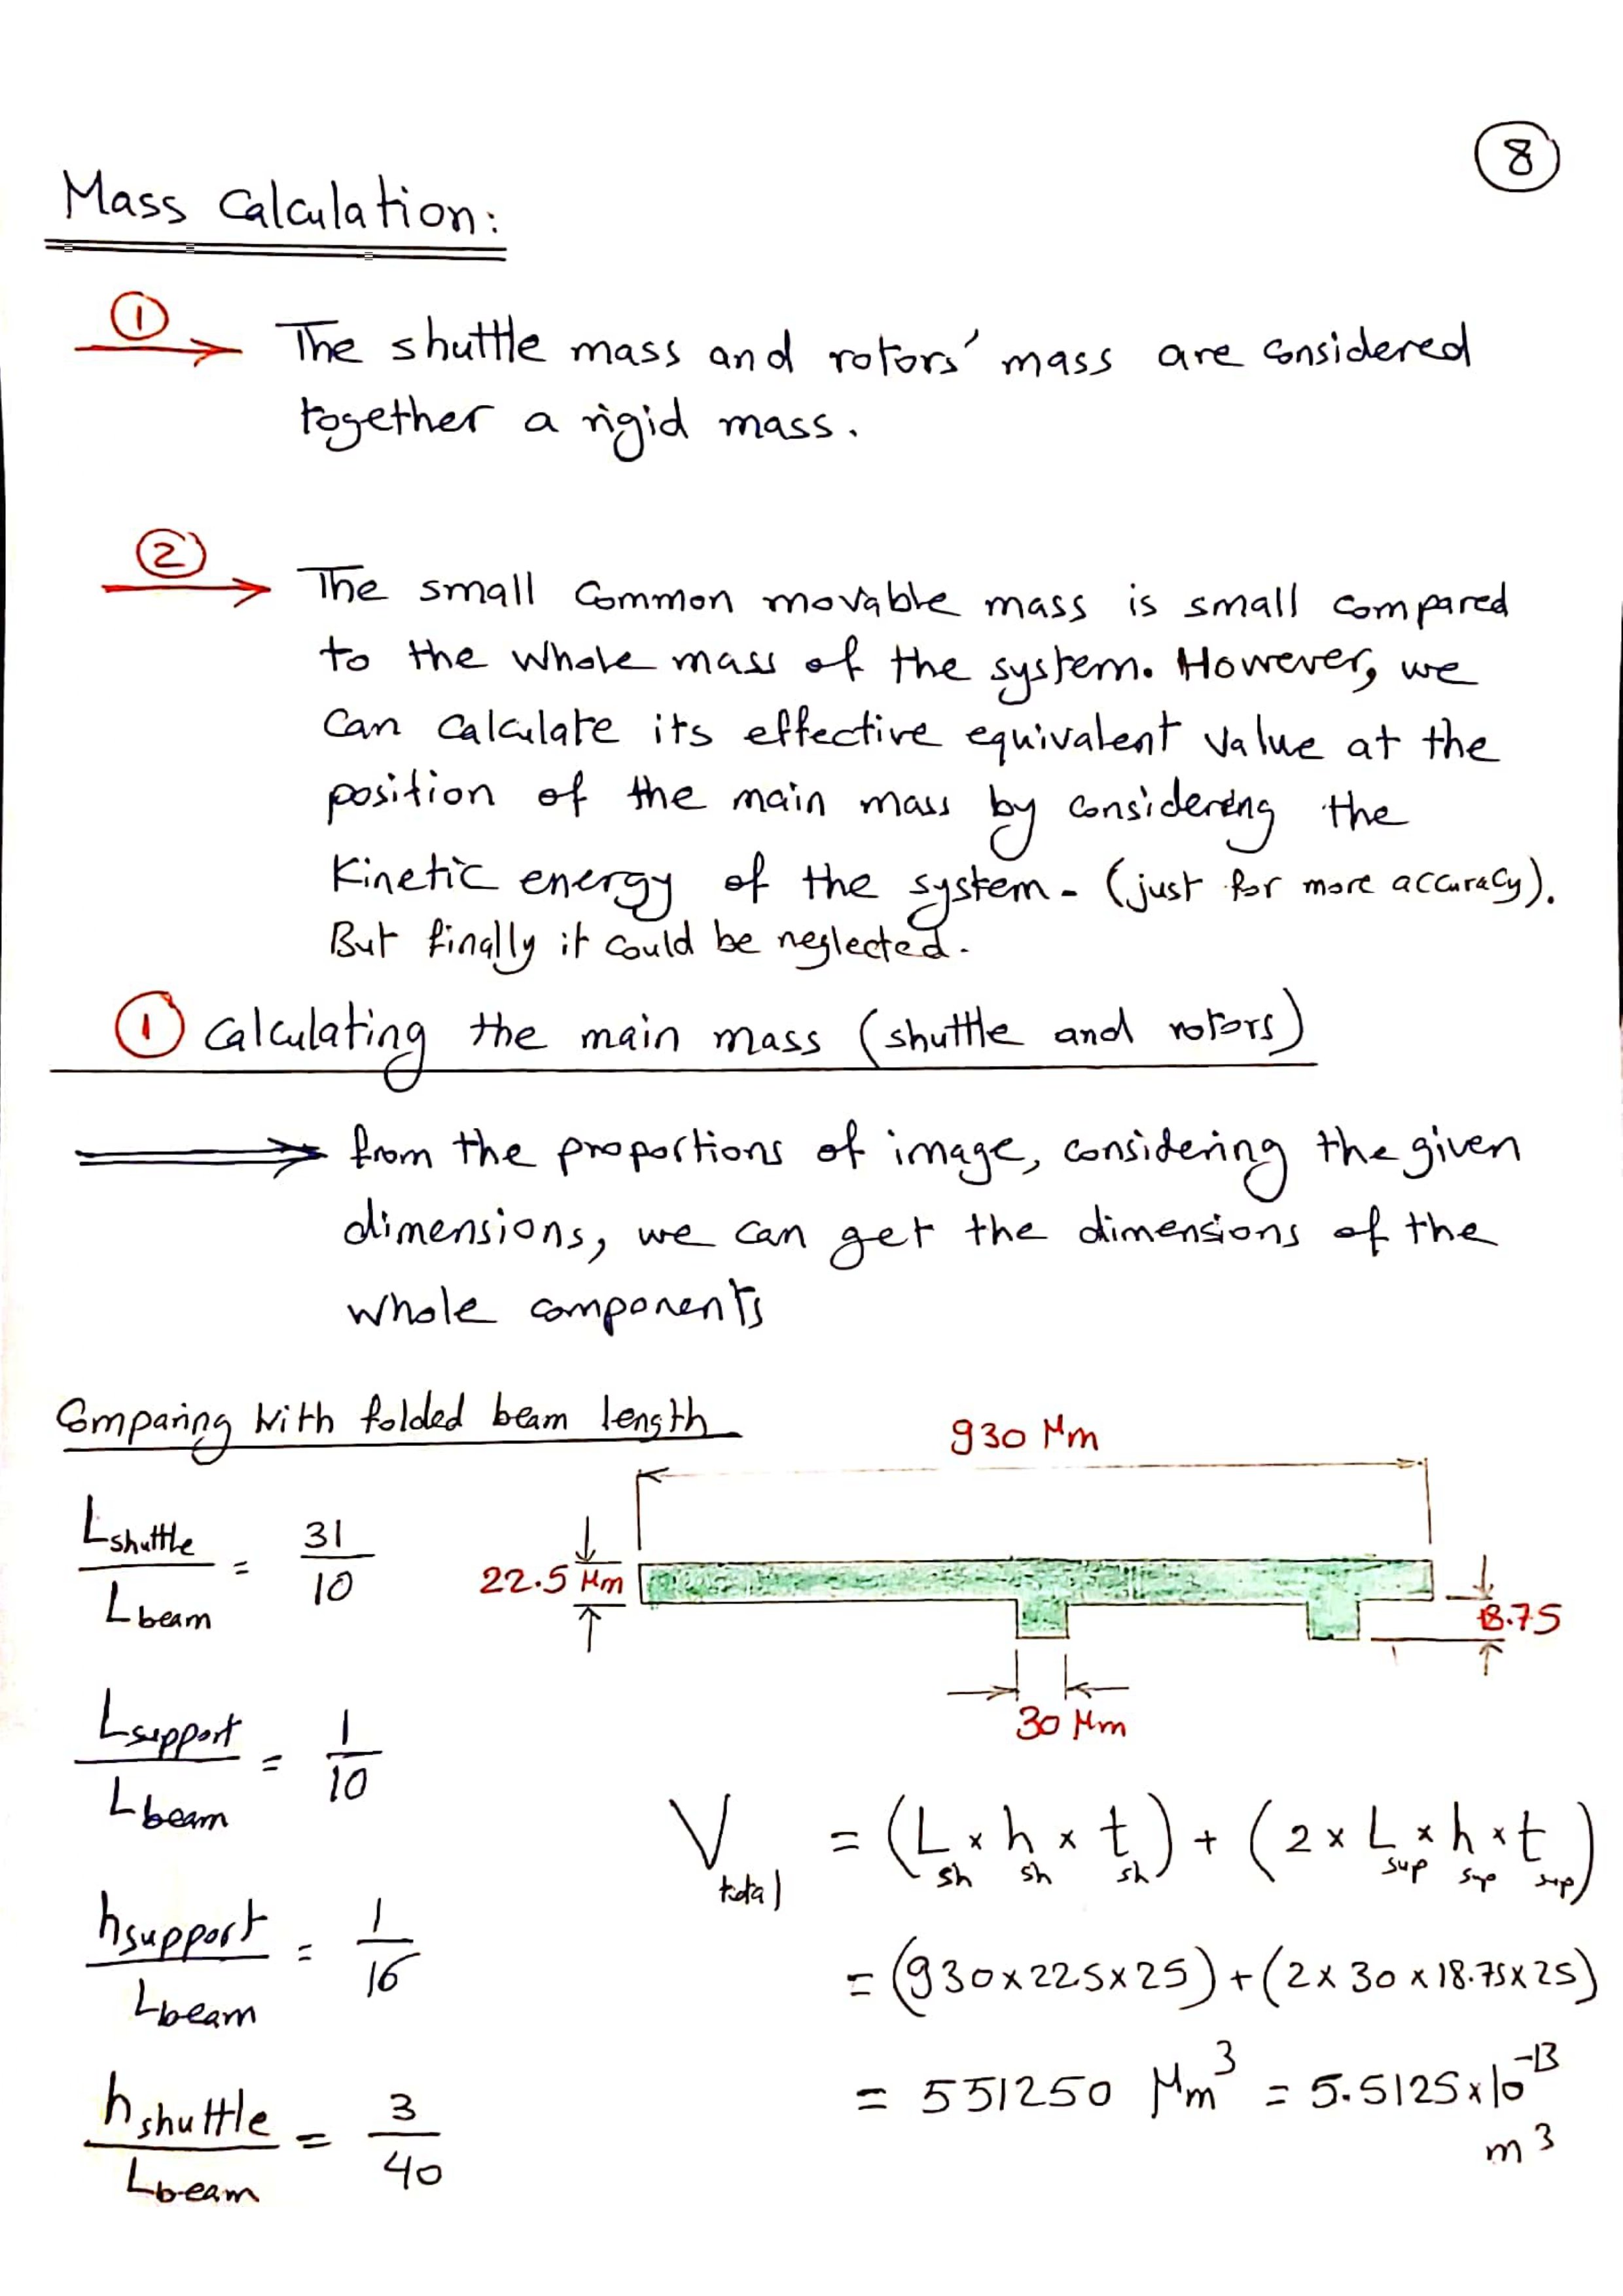 8
Mass Calculation:
① The shuttle mass and rotors' mass are considered
together a rigid mass.
② The small common movable mass is small compared
to the whole mass of the system. However, we
can calculate its effective equivalent value at the
position of the main mass by considering the
kinetic energy of the system - (just for more accuracy).
But finally it could be neglected.
① Calculating the main mass (shuttle and rotors)
⟹ from the proportions of image, considering the given
dimensions, we can get the dimensions of the
whole components
Comparing with folded beam length
930 μm
L shuttle / L beam = 31/10
22.5 μm
18.75
30 μm
L support / L beam = 1/10
V total = (L sh × h sh × t sh) + (2 × L sup × h sup × t sup)
h support / L beam = 1/16
= (930×22.5×25) + (2×30×18.75×25)
= 551250 μm³ = 5.5125×10⁻¹³
m³
h shuttle / L beam = 3/40